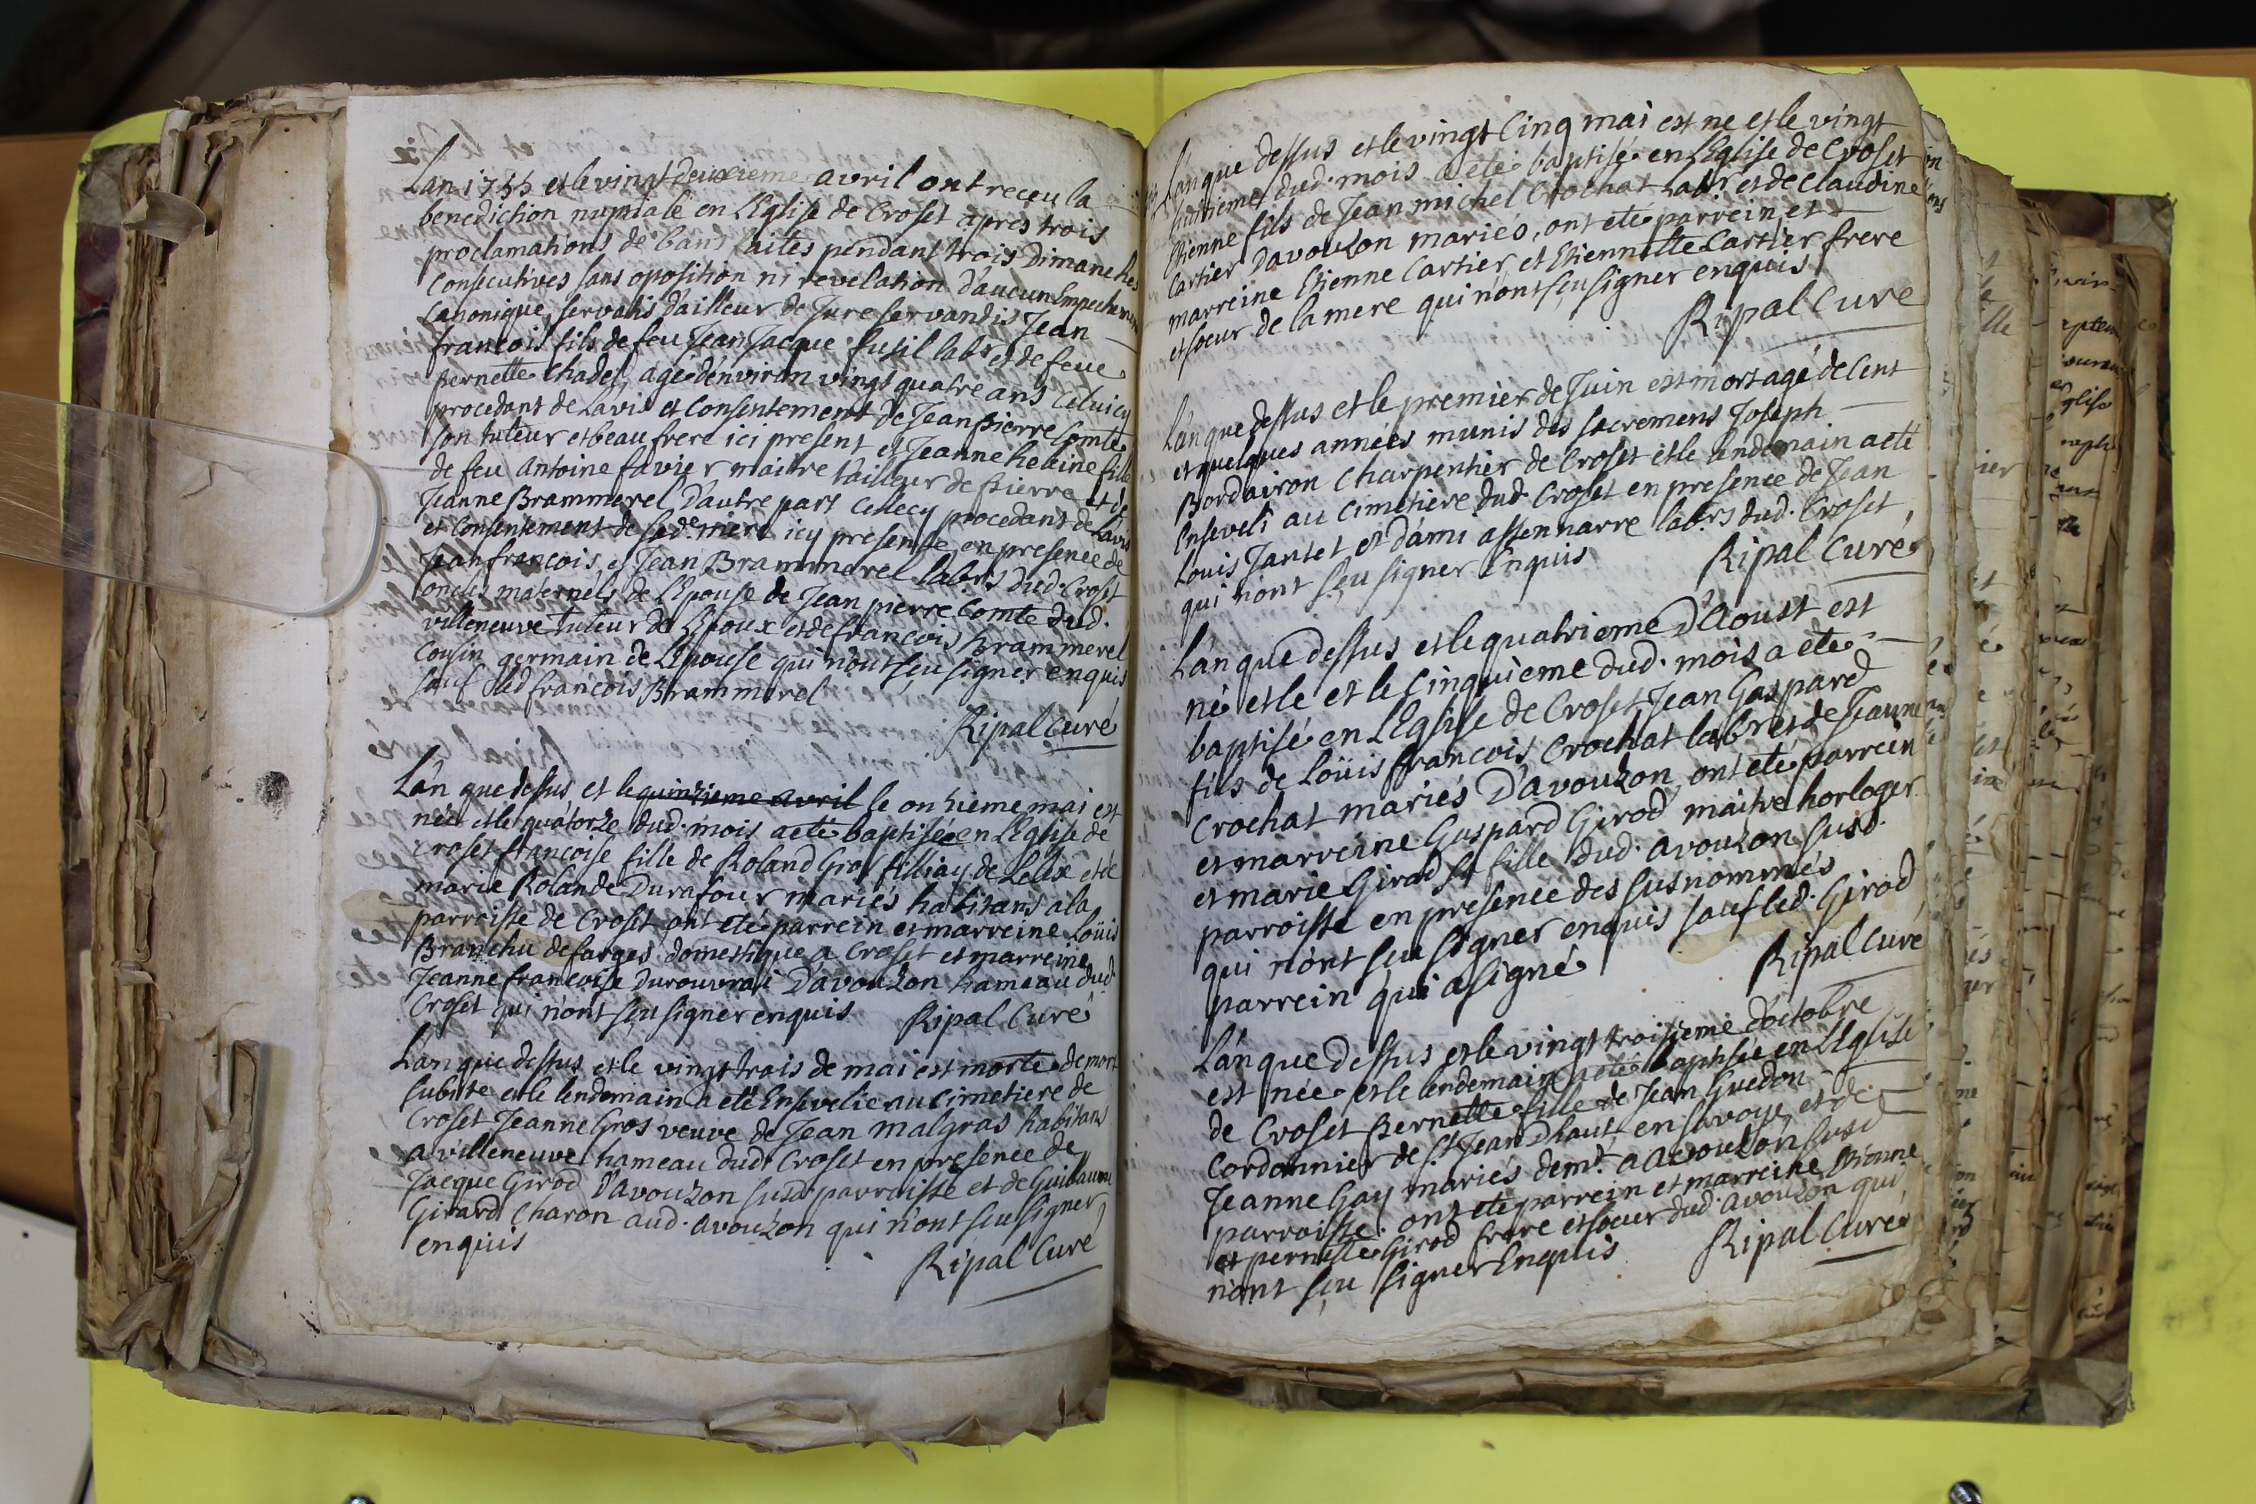 Lan 1755 et le vingt deuxieme avril ont receu la
benediction nuptiale en L'Eglise de Croset apres trois
proclamations de bans faites pendant trois Dimanches
Consecutives sans oposition ni revelation d'aucun Empechement
Canonique, servatis d'ailleur de Jure servandis Jean
francois fils de feu Jean Jacque fusil labr et de feue
pernette Chadel, agé d'environ vingt quatre ans Celuicy
procedant de L'avis et Consentement de Jean pierre Comte
son tuteur et beau frere ici present et Jeanne heleine fille
de feu Antoine favier maitre tailleur de pierre et de
Jeanne Brammerel D'autre part Cellecy procedant de L'avis
et Consentement de sad.e mere icy presente en presence de
Jean francois, et Jean Brammerel labrs dud. Croset
oncles maternels de L'Epouse de Jean pierre Comte dud.
villeneuve tuteur de L'Epoux et de francois Brammerel
Cousin germain de L'Epouse qui n'ont sçu signer enquis
sauf led francois Brammerel
Ripal Curé
L'an que dessus et le quinzieme avril le onzieme mai est
née et le quatorze dud. mois a eté baptisée en L'Eglise de
Croset francoise fille de Roland Gros filliay de Lelex et de
marie Rolande Durafour mariés habitans a la
parroisse de Croset ont eté parrein et marreine Louis
Branchu de farges domestique a Croset et marreine
Jeanne francoise Durouvrai D'avouzon hameau dud.
Croset qui n'ont sçu signer enquis Ripal Curé
L'an que dessus et le vingt trois de mai est morte de mort
subite et le lendemain a eté Ensevelie au cimetiere de
Croset Jeanne Gros veuve de Jean malgras habitans
a villeneuve hameau dud. Croset en presence de
Jacque Girod D'avouzon susd. parroisse et de Guillaume
Girard Charon aud. avouzon qui n'ont sçu signer
enquis
Ripal Curé
L'an que dessus et le vingt Cinq mai est ne et le vingt
huitieme dud. mois a eté baptisé en L'Eglise de Croset
Etienne fils de Jean michel Crochat labr et de Claudine
Cartier D'avouzon mariés, ont eté parrein et
marreine Etienne Cartier, et Etiennette Cartier frere
et soeur de la mere qui n'ont sçu signer enquis
Ripal Curé
L'an que dessus et le premier de Juin est mort agé de Cent
et quelques années munis des sacremens Joseph
Bordairon Charpentier de Croset et le lendemain a eté
Enseveli au cimetiere dud. Croset en presence de Jean
Louis Jantet et d'ami assennarre lab.rs dud. Croset,
qui n'ont sçu signer Enquis Ripal Curé
L'an que dessus et le quatrieme D'Aoust est
né et le et le Cinquieme dud. mois a eté
baptisé en L'Eglise de Croset Jean Gaspard
fils de Loüis francois Crochat labr et de Jeanne
Crochat mariés D'avouzon, ont eté parrein
et marreine Gaspard Girod maitre horloger
et marie Girod sa fille dud. avouzon susd.
parroisse en presence des susnommés
qui n'ont sçu signer enquis sauf led. Girod
parrein qui a signé Ripal Curé
L'an que dessus et le vingt troisieme d'octobre
est née et le lendemain a eté baptisée en L'Eglise
de Croset pernette fille de Jean Guedon
Cordonnier de St Jean D haut, en savoye, et de
Jeanne Gay mariés demt. a avouzon susd
parroisse. ont eté parrein et marreine Etienne
et pernette Girod frere et soeur dud. avouzon qui
n'ont sçu signer Enquis Ripal Curé